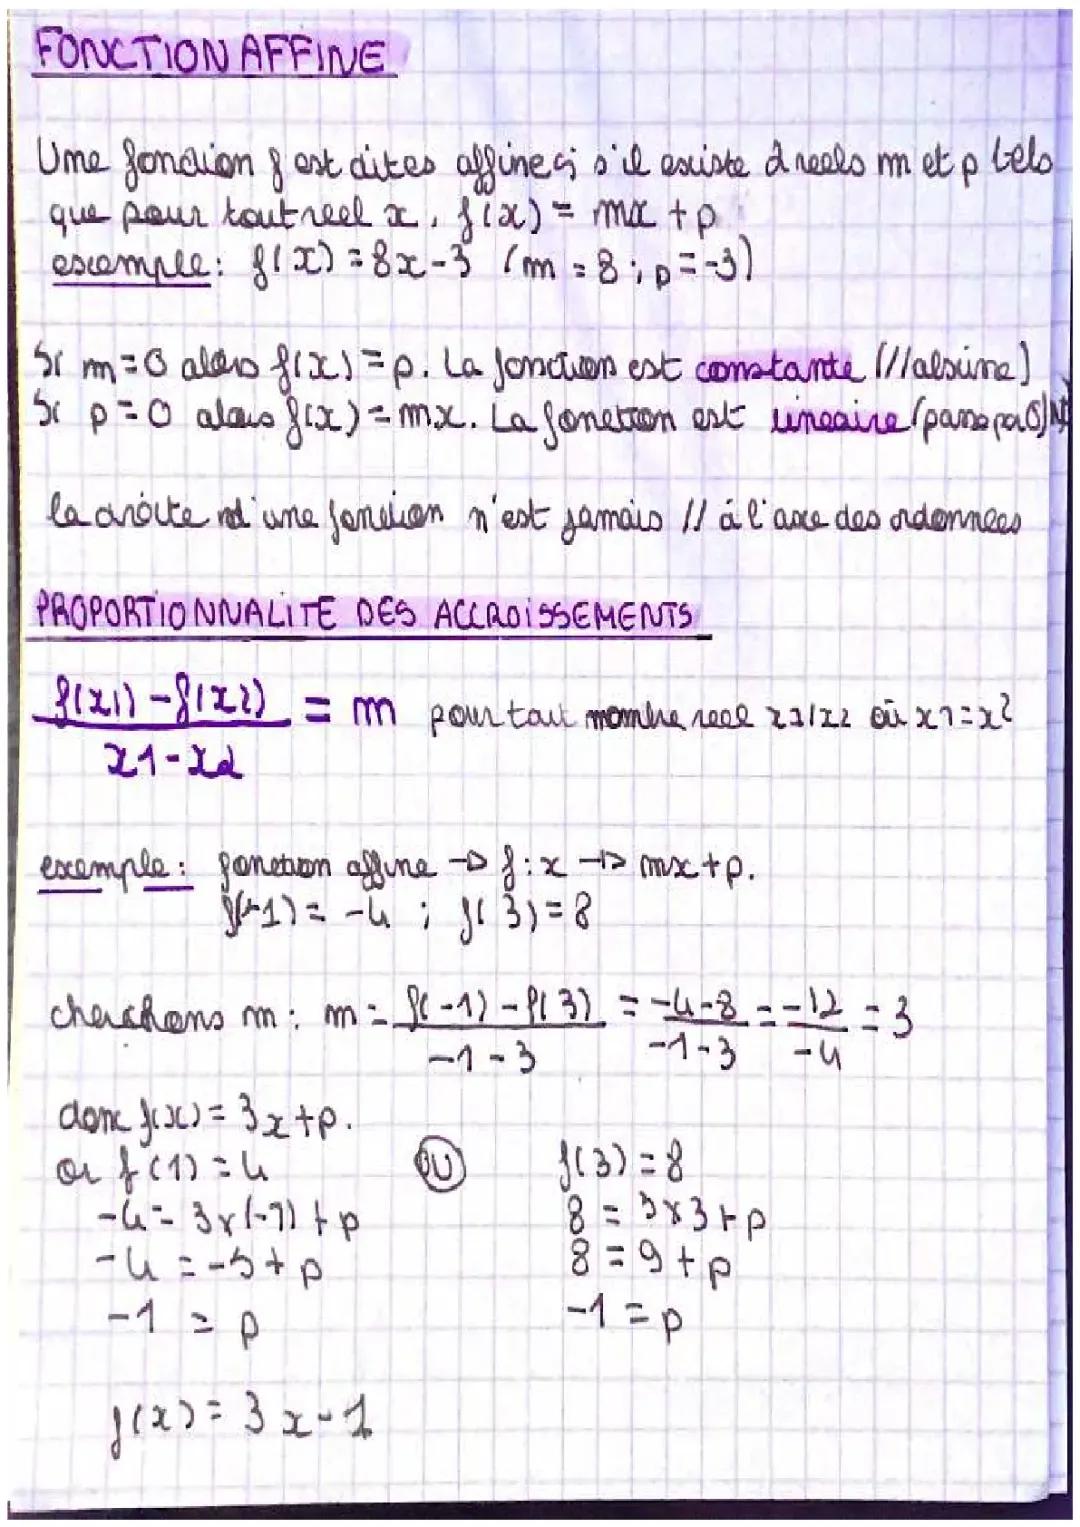 FONCTION AFFINE
Une fonction f est dites affine si s'il existe 2 reels m et p tels
que pour tout reel x, f(x) = mx + p
exemple: f(x) = 8x - 3 (m = 8 ; p = -3)
Si m = 0 alors f(x) = p. La fonction est constante (//
Si p = 0 alors f(x) = mx. La fonction est lineaire (passe par O)
la droite d'une fonction n'est jamais // à l'axe des ordonnees
PROPORTIONNALITE DES ACCROISSEMENTS
f(x1) - f(x2) = m pour tout nombre reel x1/x2 où x1 = x2
x1 - x2
exemple: fonction affine → f : x → mx + p.
f(-1) = -4 ; f(3) = 8
cherchons m : m = f(-1) - f(3) = -4-8 = -12 = 3
-1 - 3 -1-3 -4
donc f(x) = 3x + p.
or f(1) = 4 OU f(3) = 8
-4 = 3x(-1) + p 8 = 3x3 + p
-4 = -3 + p 8 = 9 + p
-1 = p -1 = p
f(x) = 3x - 1